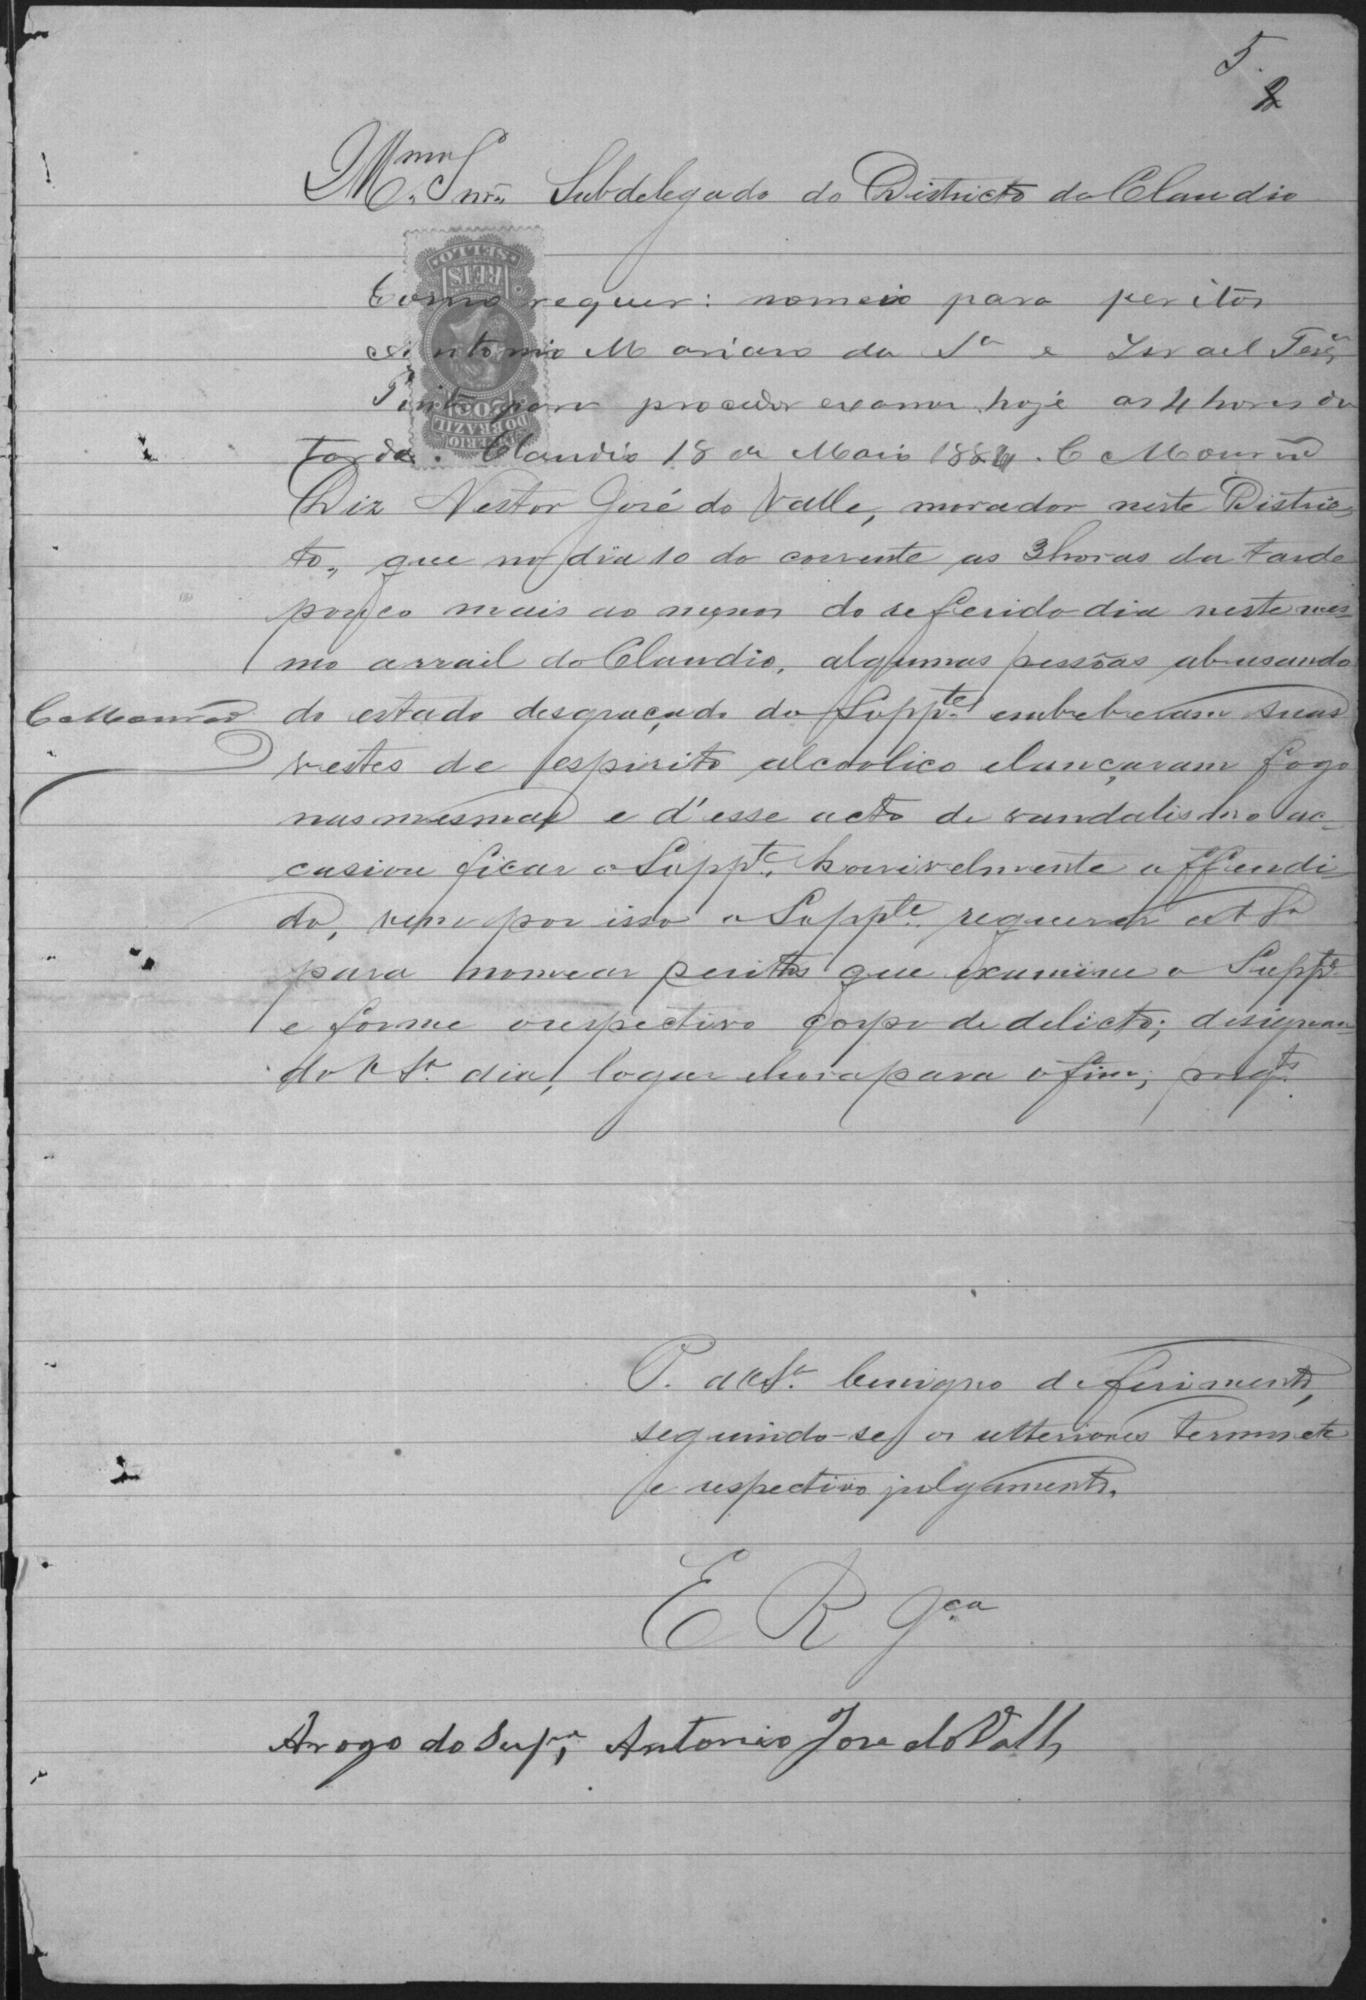 5.
2
Mmo. Snr. Subdelegado do Districto do Claudio
SELLO
REIS
200
IMPERIO
DO BRAZIL
Como requer: nomeio para peritos
Antonio Mariano da Sa e Israel
Pinto para proceder exame hoje as 4 horas da
tarde. Claudio 18 de Maio 188 . C Mourão
Diz Nestor José do Valle, morador neste Distric-
to, que no dia 10 do corrente as 3 horas da tarde
pouco mais ao menos do referido dia neste mes-
mo arrail do Claudio, algumas pessõas abusando
C Mourão
do estado desgraçado do Suppte. embeberam suas
vestes de espirito alcoolico e lançaram fogo
nas mesmas e d'esse acto de vandalismo oc-
casiou ficar o Suppte. horrivelmente offendi-
do, vem por isso o Suppte. requerer a V Sa
para nomear peritos que examine o Suppte
e forme o respectivo corpo de delicto; designan-
do V Sa. dia, logar e hora para o fim; pelo qto.
P. a V Sa. benigno deferimento,
seguindo-se os ulteriores termos etc
e respectivo julgamento.
E R Mca
Arogo do Supe, Antonio Jose do Valle